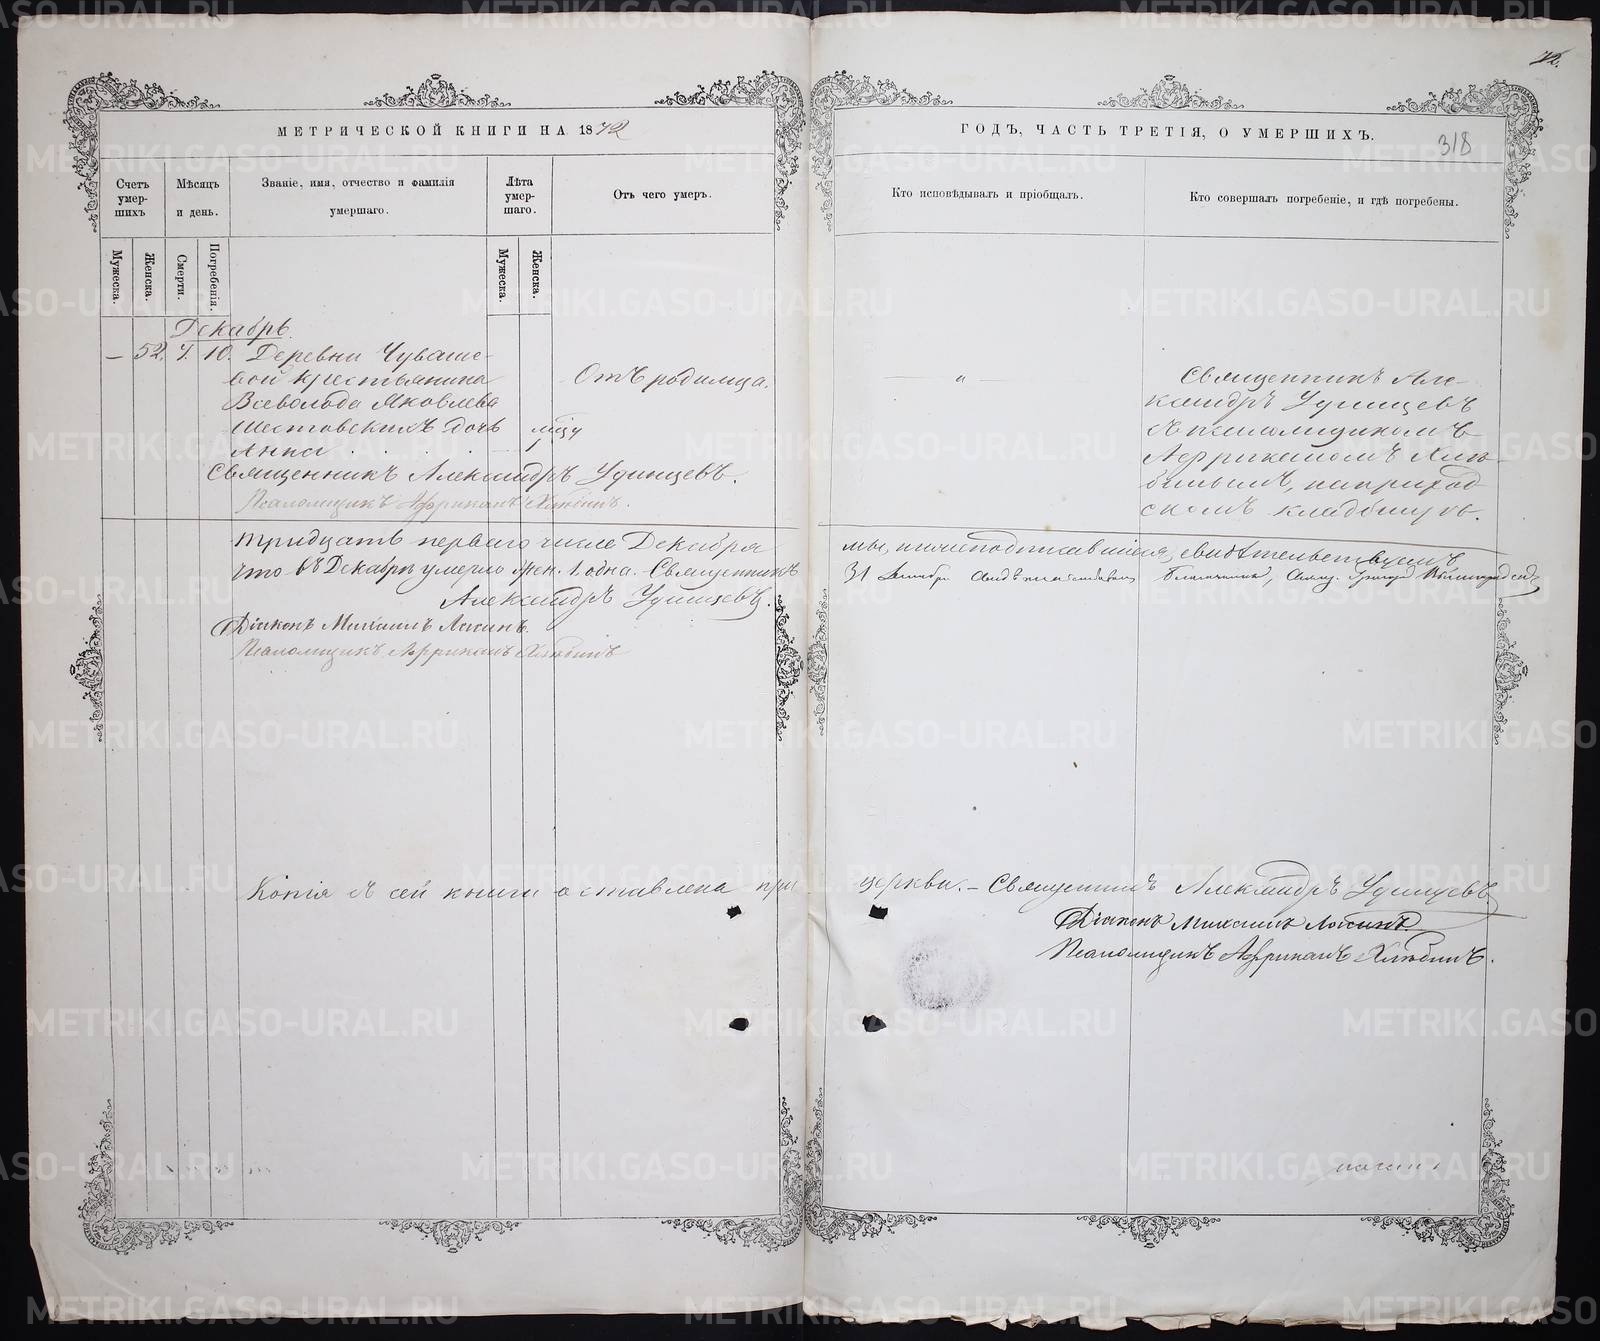 72.
МЕТРИЧЕСКОЙ КНИГИ НА 1872
ГОДЪ, ЧАСТЬ ТРЕТІЯ, О УМЕРШИХЪ.
318
Счетъ умер-шихъ
Мѣсяцъ и день.
Званіе, имя, отчество и фамилія умершаго.
Лѣта умер-шаго.
Отъ чего умеръ.
Кто исповѣдывалъ и пріобщалъ.
Кто совершалъ погребеніе, и гдѣ погребены.
Мужеска.
Женска.
Смерти.
Погребенія.
Мужеска.
Женска.
Декабрь
— 52. 7. 10. Деревни Чуваше-
вой крестьянина
Всеволода Яковлева
Шестовскихъ дочь
Анна . . . . 1
Отъ родимца.
— „ —
Священникъ Але-
ксандръ Удинцевъ
съ псаломщикомъ
Африканомъ Хлю-
бинымъ, на приход-
скомъ кладбищѣ.
Священникъ Александръ Удинцевъ.
Псаломщикъ Африканъ Хлюбинъ.
Тридцать перваго числа Декабря мы, нижеподписавшіеся, свидѣтельствуемъ
что въ Декабрѣ умерло жен. 1. одна. Священникъ
Александръ Удинцевъ.
Діаконъ Михаилъ
Псаломщикъ Африканъ Хлюбинъ
31 Декабря
Копія съ сей книги оставлена при церкви. – Священникъ Александръ Удинцевъ
Діаконъ Михаилъ
Псаломщикъ Африканъ Хлюбинъ.
METRIKI.GASO-URAL.RU